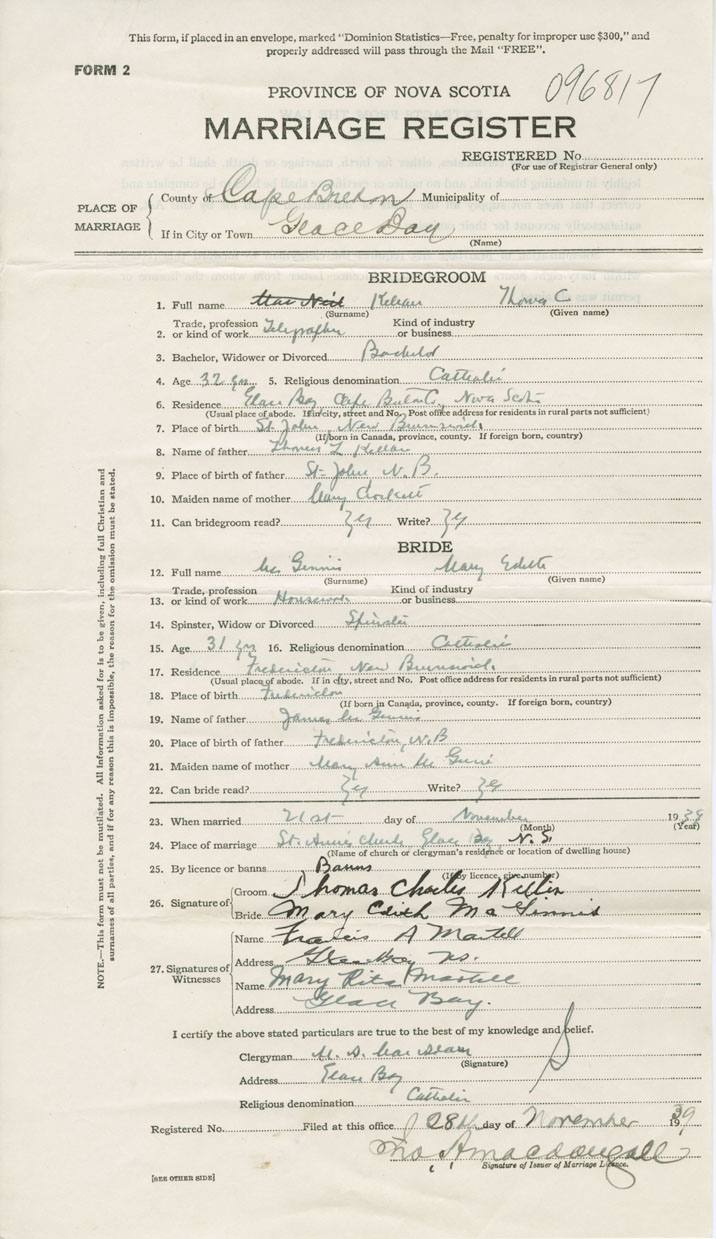 This form, if placed in an envelope, marked "Dominion Statistics—Free, penalty for improper use $300," and
properly addressed will pass through the Mail "FREE".
FORM 2
096817
PROVINCE OF NOVA SCOTIA
MARRIAGE REGISTER
REGISTERED No.
(For use of Registrar General only)
PLACE OF MARRIAGE
County of Cape Breton Municipality of
If in City or Town Glace Bay
(Name)
BRIDEGROOM
1. Full name Killan Thomas C
(Surname) (Given name)
2. Trade, profession or kind of work Telegrapher Kind of industry or business
3. Bachelor, Widower or Divorced Bachelor
4. Age 32 yrs 5. Religious denomination Catholic
6. Residence Glace Bay Cape Breton, Nova Scotia
(Usual place of abode. If in city, street and No. Post office address for residents in rural parts not sufficient)
7. Place of birth St. John, New Brunswick
(If born in Canada, province, county. If foreign born, country)
8. Name of father Thomas L Killan
9. Place of birth of father St. John N. B.
10. Maiden name of mother Mary
11. Can bridegroom read? Yes Write? Yes
BRIDE
12. Full name Mc Ginnis Mary Edith
(Surname) (Given name)
13. Trade, profession or kind of work Housework Kind of industry or business
14. Spinster, Widow or Divorced Spinster
15. Age 31 yrs 16. Religious denomination Catholic
17. Residence Fredericton, New Brunswick
(Usual place of abode. If in city, street and No. Post office address for residents in rural parts not sufficient)
18. Place of birth Fredericton
(If born in Canada, province, county. If foreign born, country)
19. Name of father James Mc Ginnis
20. Place of birth of father Fredericton, N.B
21. Maiden name of mother Mary Ann Mc
22. Can bride read? Yes Write? Yes
23. When married 21st day of November 1939
(Month) (Year)
24. Place of marriage St. Anne's Church Glace Bay N. S.
(Name of church or clergyman's residence or location of dwelling house)
25. By licence or banns Banns
(If by licence, give number)
26. Signature of
Groom Thomas Charles Killin
Bride Mary Edith McGinnis
27. Signatures of Witnesses
Name Francis A Martell
Address Glace Bay NS.
Name Mary Rita Martell
Address Glace Bay.
I certify the above stated particulars are true to the best of my knowledge and belief.
Clergyman M. A. MacAdam
(Signature)
Address Glace Bay
Religious denomination Catholic
Registered No. Filed at this office 28th day of November 1939
Macdougall
Signature of Issuer of Marriage Licence.
[SEE OTHER SIDE]
NOTE.—This form must not be mutilated. All information asked for is to be given, including full Christian and
surnames of all parties, and if for any reason this is impossible, the reason for the omission must be stated.